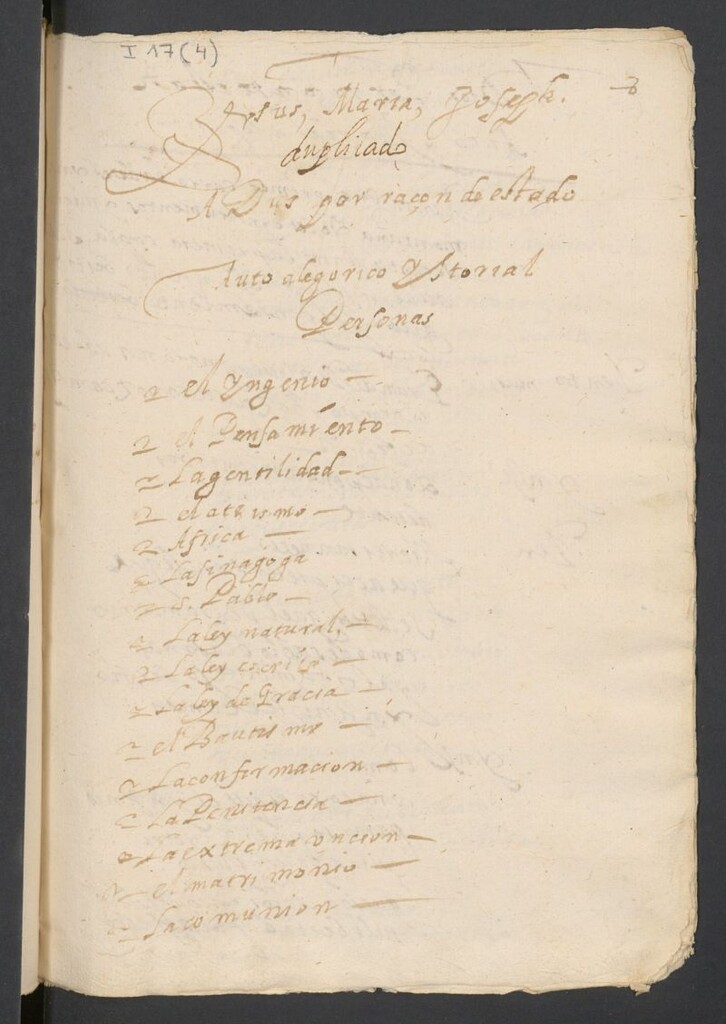 I 17(4)
Jesus, Maria, Joseph.
duplicado
A Dus por raçon de estado
Auto alegorico Ystorial
Personas
2 el Yngenio —
2 el Pensamiento —
2 La gentilidad —
2 el ateismo —
2 Africa —
2 La sinagoga
2 s. Pablo —
2 La ley natural, —
2 La ley escrita —
2 La ley de Gracia —
2 el Bautismo —
2 La confirmacion —
2 La Penitencia —
2 La extrema oncion —
2 el matrimonio —
2 La comunion —